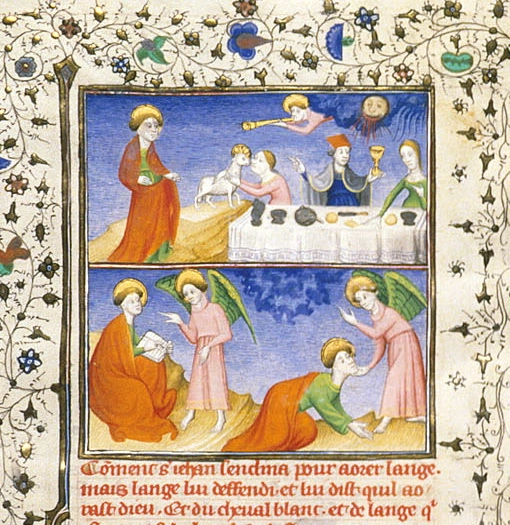 Coment s iehan senclina pour aorer lange.
mais lange lui deffendi. et lui dist quil ao
rast dieu. Et du cheual blanc. et de lange q